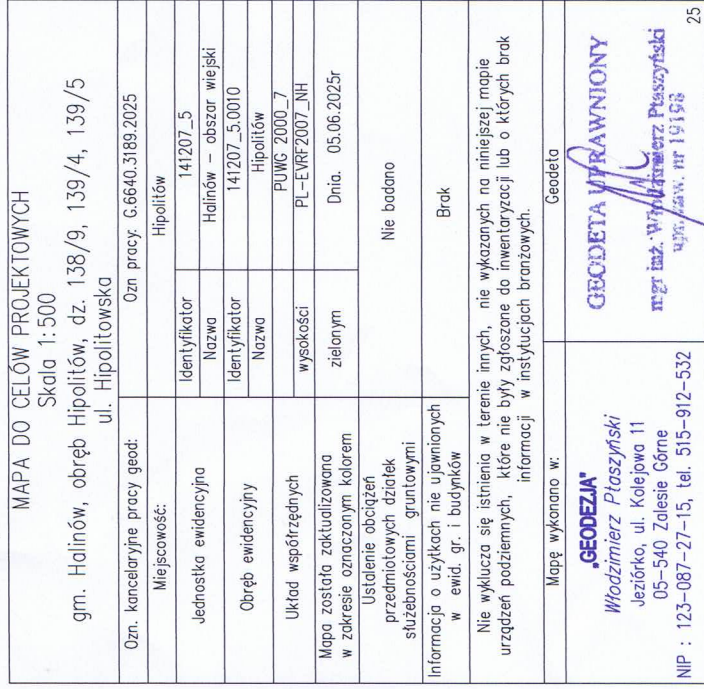 MAPA DO CELÓW PROJEKTOWYCH
Skala 1:500
gm. Halinów, obręb Hipolitów, dz. 138/9, 139/4, 139/5
ul. Hipolitowska
Ozn. kancelaryjne pracy geod:
Ozn pracy: G.6640.3189.2025
Miejscowość:
Hipolitów
Jednostka ewidencyjna
Identyfikator
141207_5
Nazwa
Halinów – obszar wiejski
Obręb ewidencyjny
Identyfikator
141207_5.0010
Nazwa
Hipolitów
Układ współrzędnych
PUWG 2000_7
wysokości
PL-EVRF2007_NH
Mapa została zaktualizowana
w zakresie oznaczonym kolorem
zielonym
Dnia. 05.06.2025r
Ustalenie obciążeń
przedmiotowych działek
służebnościami gruntowymi
Nie badano
Informacja o użytkach nie ujawnionych
w ewid. gr. i budynków
Brak
Nie wyklucza się istnienia w terenie innych, nie wykazanych na niniejszej mapie
urządzeń podziemnych, które nie były zgłoszone do inwentaryzacji lub o których brak
informacji w instytucjach branżowych.
Mapę wykonano w:
„GEODEZJA"
Włodzimierz Ptaszyński
Jeziórko, ul. Kolejowa 11
05-540 Zalesie Górne
NIP : 123-087-27-15, tel. 515-912-532
Geodeta
GEODETA UPRAWNIONY
mgr inż. Włodzimierz Ptaszyński
upr. zaw. nr 19198
25